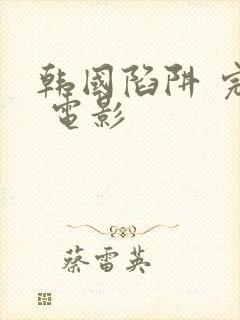 韩國陷阱 完
電影
蔡雷英